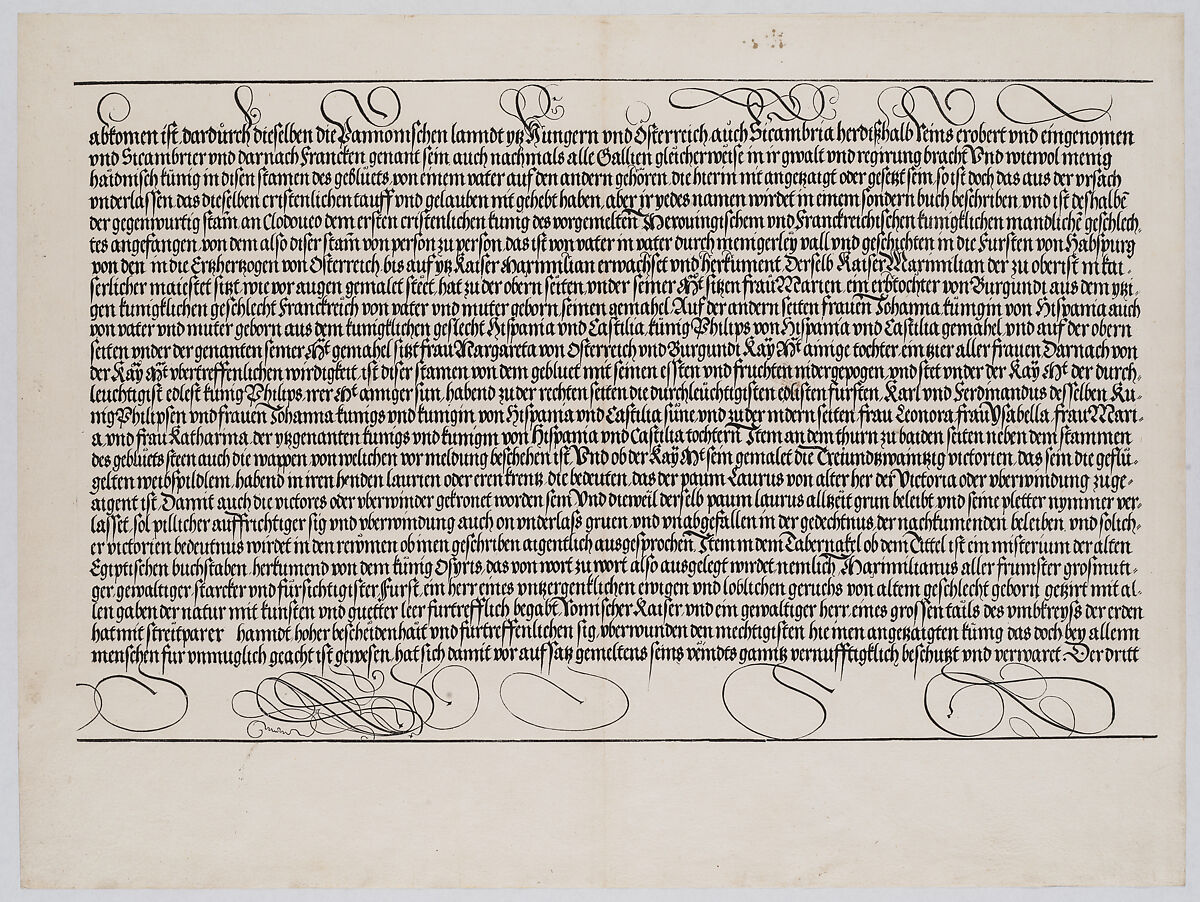 abkomen ist, dardurch dieselben die Pannonischen lanndt ytz Hungern vnd Österreich auch Sicambria herdißhalb Reins erobert vnd eingenomen
vnd Sicambrier vnd darnach Francken genant sein, auch nachmals alle Gallien gleicherweise in ir gwalt vnd regirung bracht Vnd wiewol menig
haidnisch künig in disen stamen des geblüets, von einem vater auf den andern gehören, die hierin mit angetzaigt oder gesetzt sein, so ist doch das aus der vrsach
vnderlassen, das dieselben cristenlichen tauff vnd gelauben mit gehebt haben, aber ir yedes namen wirdet in einem sondern buch beschriben, vnd ist deshalbē
der gegenwurtig stam̄ an Clodoueo dem ersten cristenlichen kunig des vorgemelten Merouingischem vnd Franckreichischen kunigklichen mandlichē geschlech,
tes angefangen, von dem also diser stam̄ von person zu person, das ist von vater in vater durch menigerley vall vnd geschichten in die Fursten von Habspurg
von den in die Ertzhertzogen von Österreich, bis auf ytz Kaiser Maximilian erwachset vnd herkument, Derselb Kaiser Maximilian der zu oberist in kai-
serlicher maiestet sitzt, wie vor augen gemalet steet, hat zu der obern seiten, vnder seiner Mt sitzen frau Marien, ein erbtochter von Burgundi aus dem ytzi-
gen kunigklichen geschlecht Franckreich von vater vnd muter geborn seinen gemahel, Auf der andern seiten frauen Johanna künigin von Hispania auch
von vater vnd muter geborn aus dem kunigklichen geslecht Hispania vnd Castilia, kunig Philips von Hispania vnd Castilia gemahel, vnd auf der obern
seiten vnder der genanten seiner Mt gemahel sitzt frau Margareta von Osterreich vnd Burgundi, Kay Mt ainige tochter, ein tzier aller frauen, Darnach von
der Kay Mt vbertreffenlichen wirdigkeit, ist diser stamen von dem gebluet mit seinen essten vnd fruchten nidergepogen, vnd stet vnder der Kay Mt der durch-
leuchtigist edlest kunig Philips, irer Mt ainiger sun, habend zu der rechten seiten die durchleuchtigisten edlisten fursten, Karl vnd Ferdinandus desselben Ku-
nig Philipsen vnd frauen Johanna kunigs vnd kunigin von Hispania vnd Castilia süne, vnd zu der indern seiten, frau Leonora frau Ysabella, frau Mari-
a, vnd frau Katharina, der ytzgenanten kunigs vnd kunigin von Hispania vnd Castilia tochtern, Item an dem thurn zu baiden seiten neben dem stammen
des geblüets steen auch die wappen, von welichen vor meldung beschehen ist, Vnd ob der Kay Mt sein gemalet die Treiundtzwaintzig victorien, das sein die geflü-
gelten weibspildlein, habend in iren henden laurien oder eren krentz, die bedeuten, das der paum Laurus von alter her der Victoria oder vberwindung zuge-
aigent ist, Damit auch die victores oder vberwinder gekronet worden sein Vnd dieweil derselb paum laurus alltzeit grun beleibt vnd seine pletter nymmer ver-
lasset, sol pillicher auffrichtiger sig vnd vberwindung auch on vnderlass gruen vnd vnabgefallen in der gedechtnus der nachkumenden beleiben, vnd solich-
er victorien bedeutnus wirdet in den reimen ob inen geschriben aigentlich ausgesprochen, Item in dem Tabernakel ob dem Tittel ist ein misterium der alten
Egiptischen buchstaben, herkumend von dem künig Osyris, das von wort zu wort also ausgelegt wirdet, nemlich Maximilianus aller frumster grosmuti-
ger gewaltiger starcker vnd fürsichtigister Furst, ein herr eines vntzergenklichen ewigen vnd loblichen geruchs von altem geschlecht geborn, getzirt mit al-
len gaben der natur mit kunsten vnd guetter leer furtrefflich begabt Römischer Kaiser, vnd ein gewaltiger herr, eines grossen tails des vmbkreyss der erden
hat mit streitparer hanndt, hoher bescheidenhait vnd furtreffenlichen sig, vberwunden den mechtigisten hie inen angetzaigten kunig das doch bey allenn
menschen fur vnmuglich geacht ist gewesen, hat sich damit vor aufsatz gemeltens seins veindts gantz vernufftigklich beschutzt vnd verwaret, Der dritt